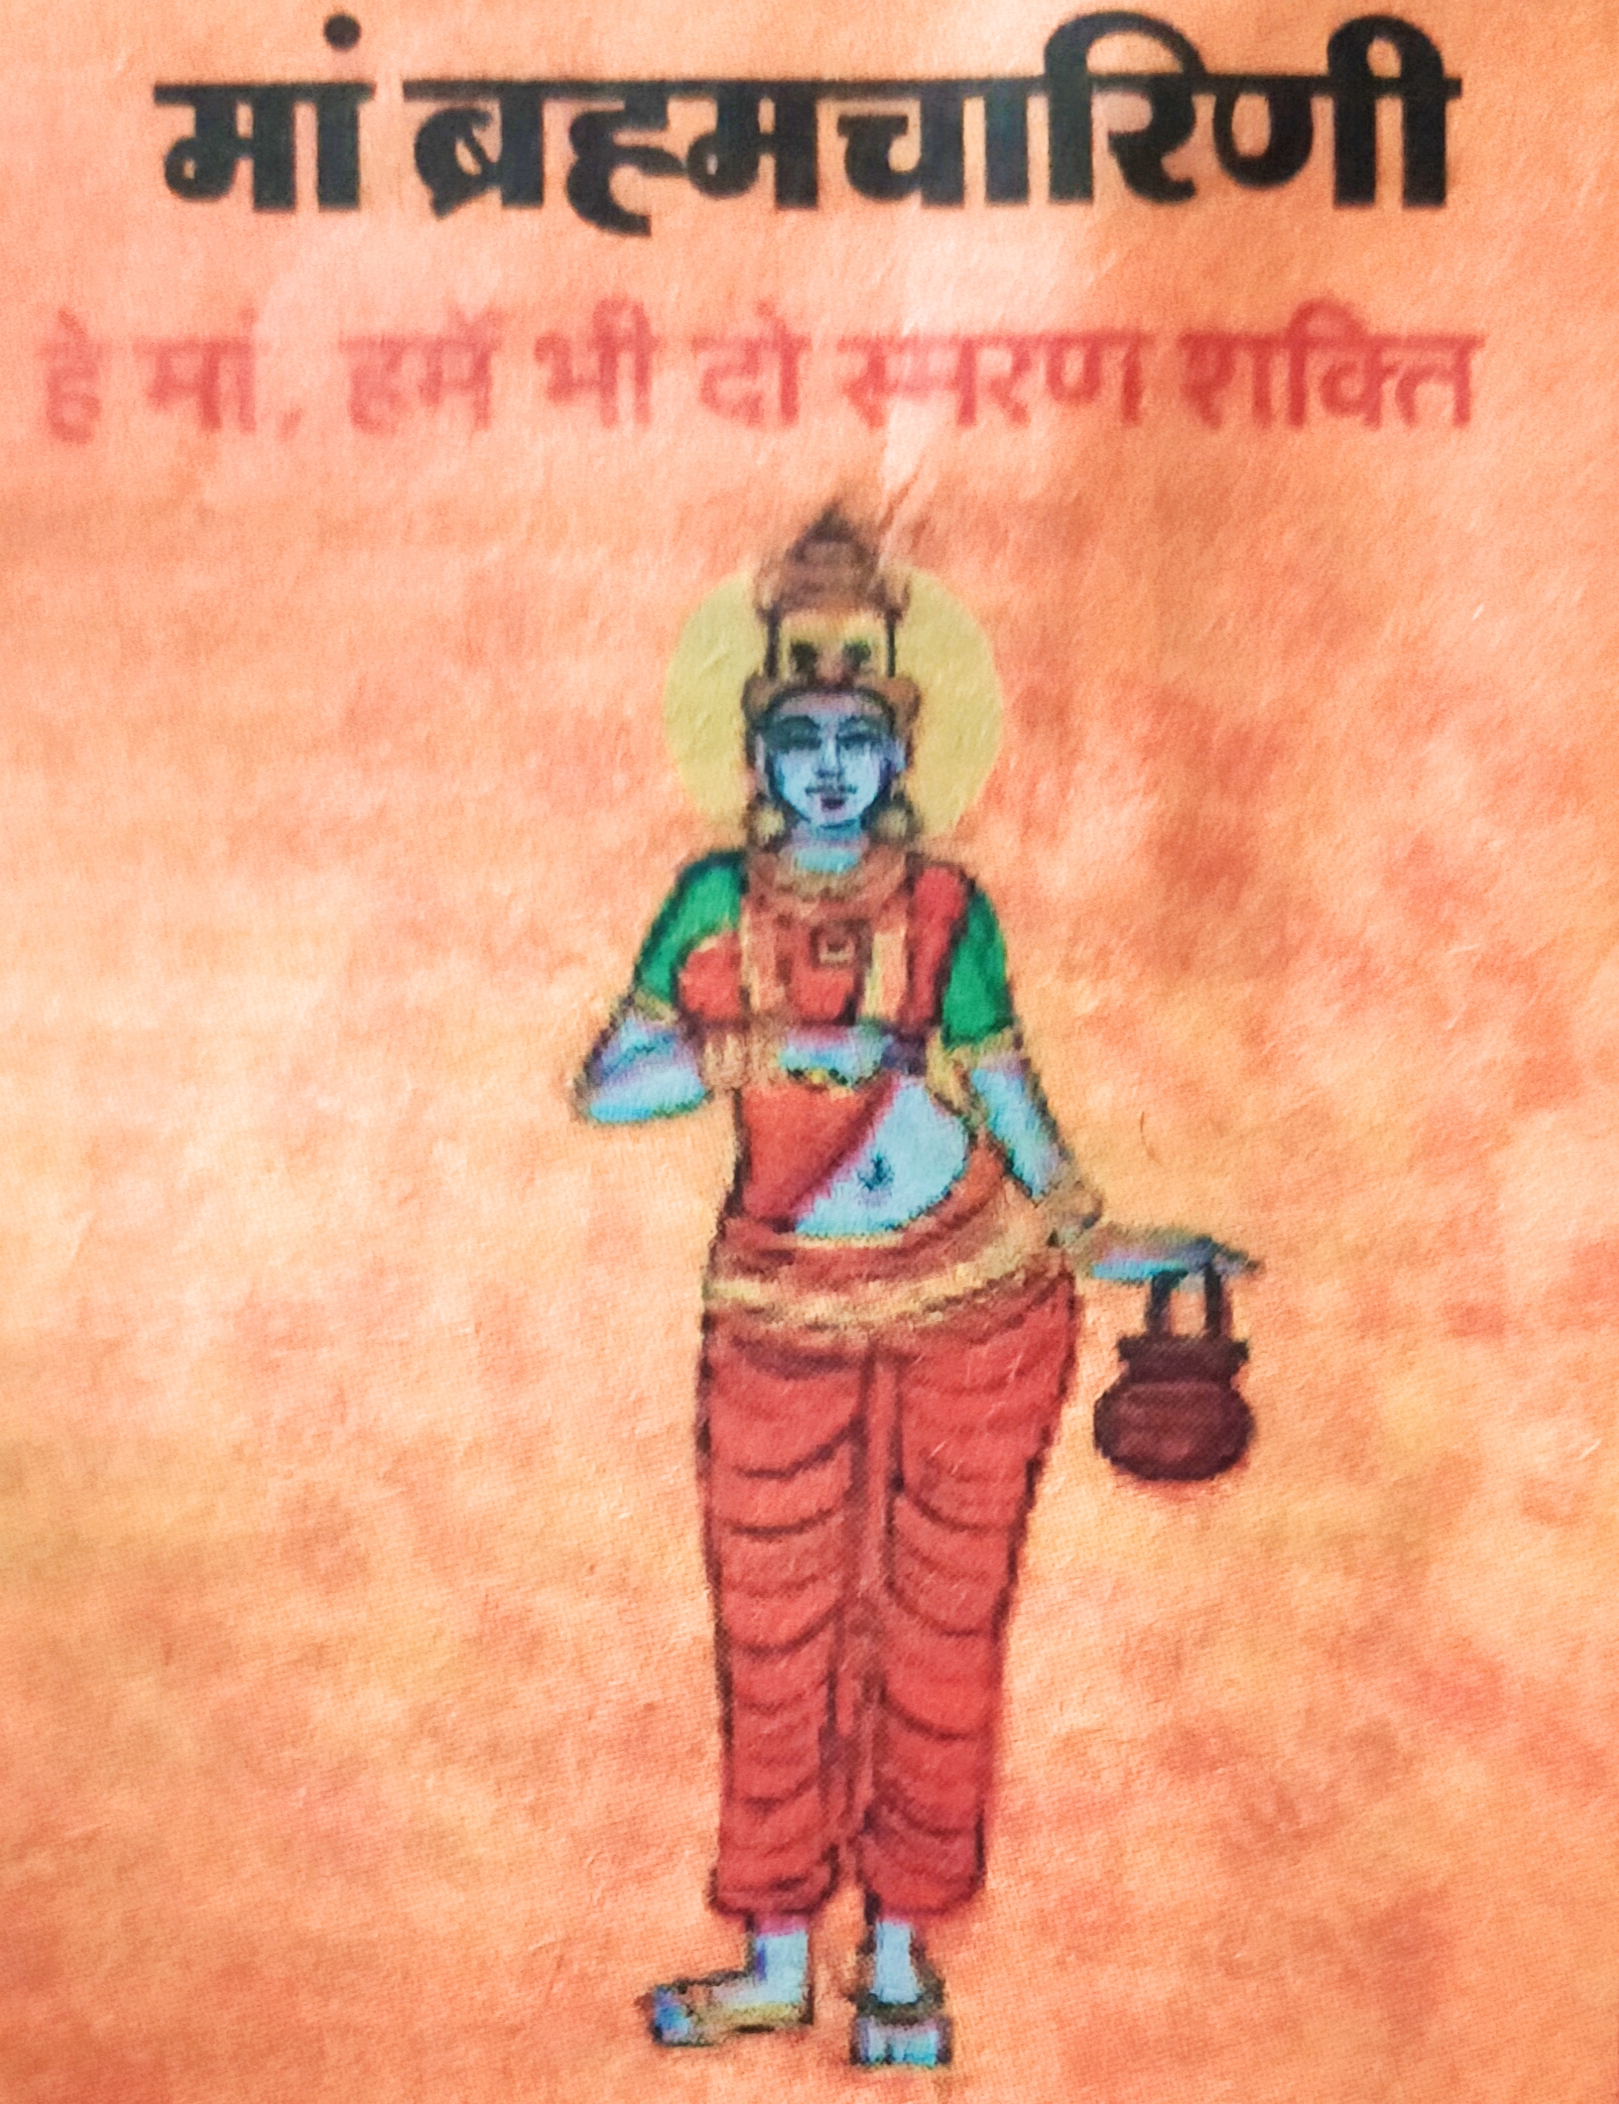 मां ब्रह्मचारिणी
हे मां, हमें भी दो स्मरण शक्ति